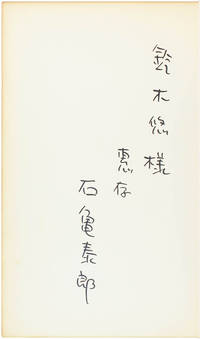 鈴木悠様
恵存
石亀泰郎